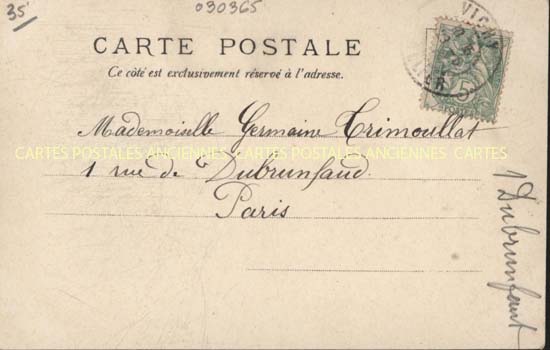 35
030365
CARTE POSTALE
Ce côté est exclusivement réservé à l'adresse.
VICHY
ALLIER
5
Mademoiselle Germaine Trimoullat
CARTES POSTALES ANCIENNES CARTES POSTALES ANCIENNES CARTES
1 rue de Dubrunfaud.
Paris
1 Dubrunfaut